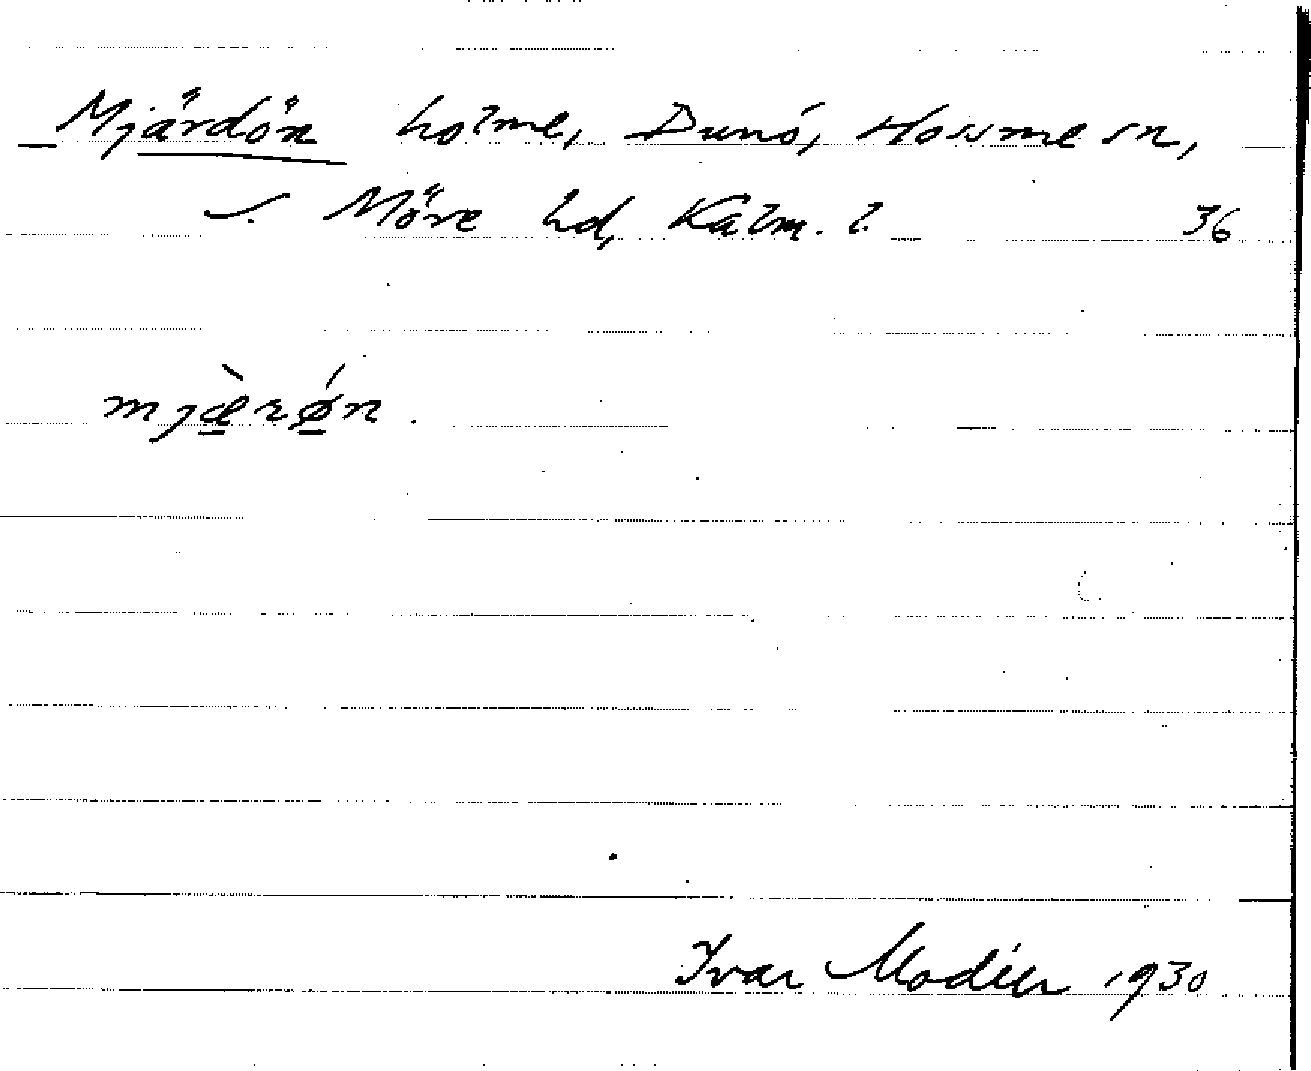 Mjärdön holme, Dunö, Hossmo sn,
S. Möre hd, Kalm. l. 36
mjæ̀rǿn.
Ivar Modéer 1930